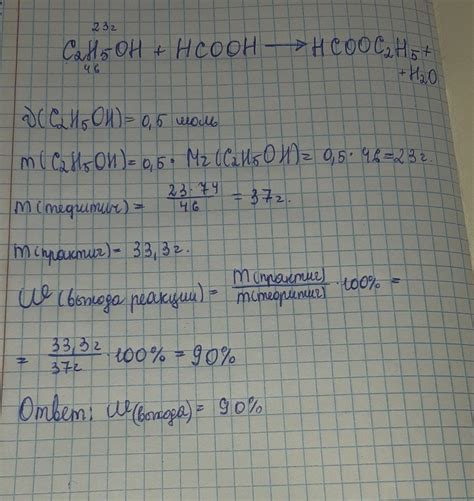 23г
C₂H₅OH + HCOOH ⟶ HCOOC₂H₅ +
46
+ H₂O
ν(C₂H₅OH) = 0,5 моль
m(C₂H₅OH) = 0,5 · Mr(C₂H₅OH) = 0,5 · 46 = 23г.
m(теоритич) = 23·74/46 = 37г.
m(практич) - 33,3г.
W (выхода реакции) = m(практич)/m(теоритич) · 100% =
= 33,3г/37г · 100% = 90%
Ответ: W(выхода) = 90%